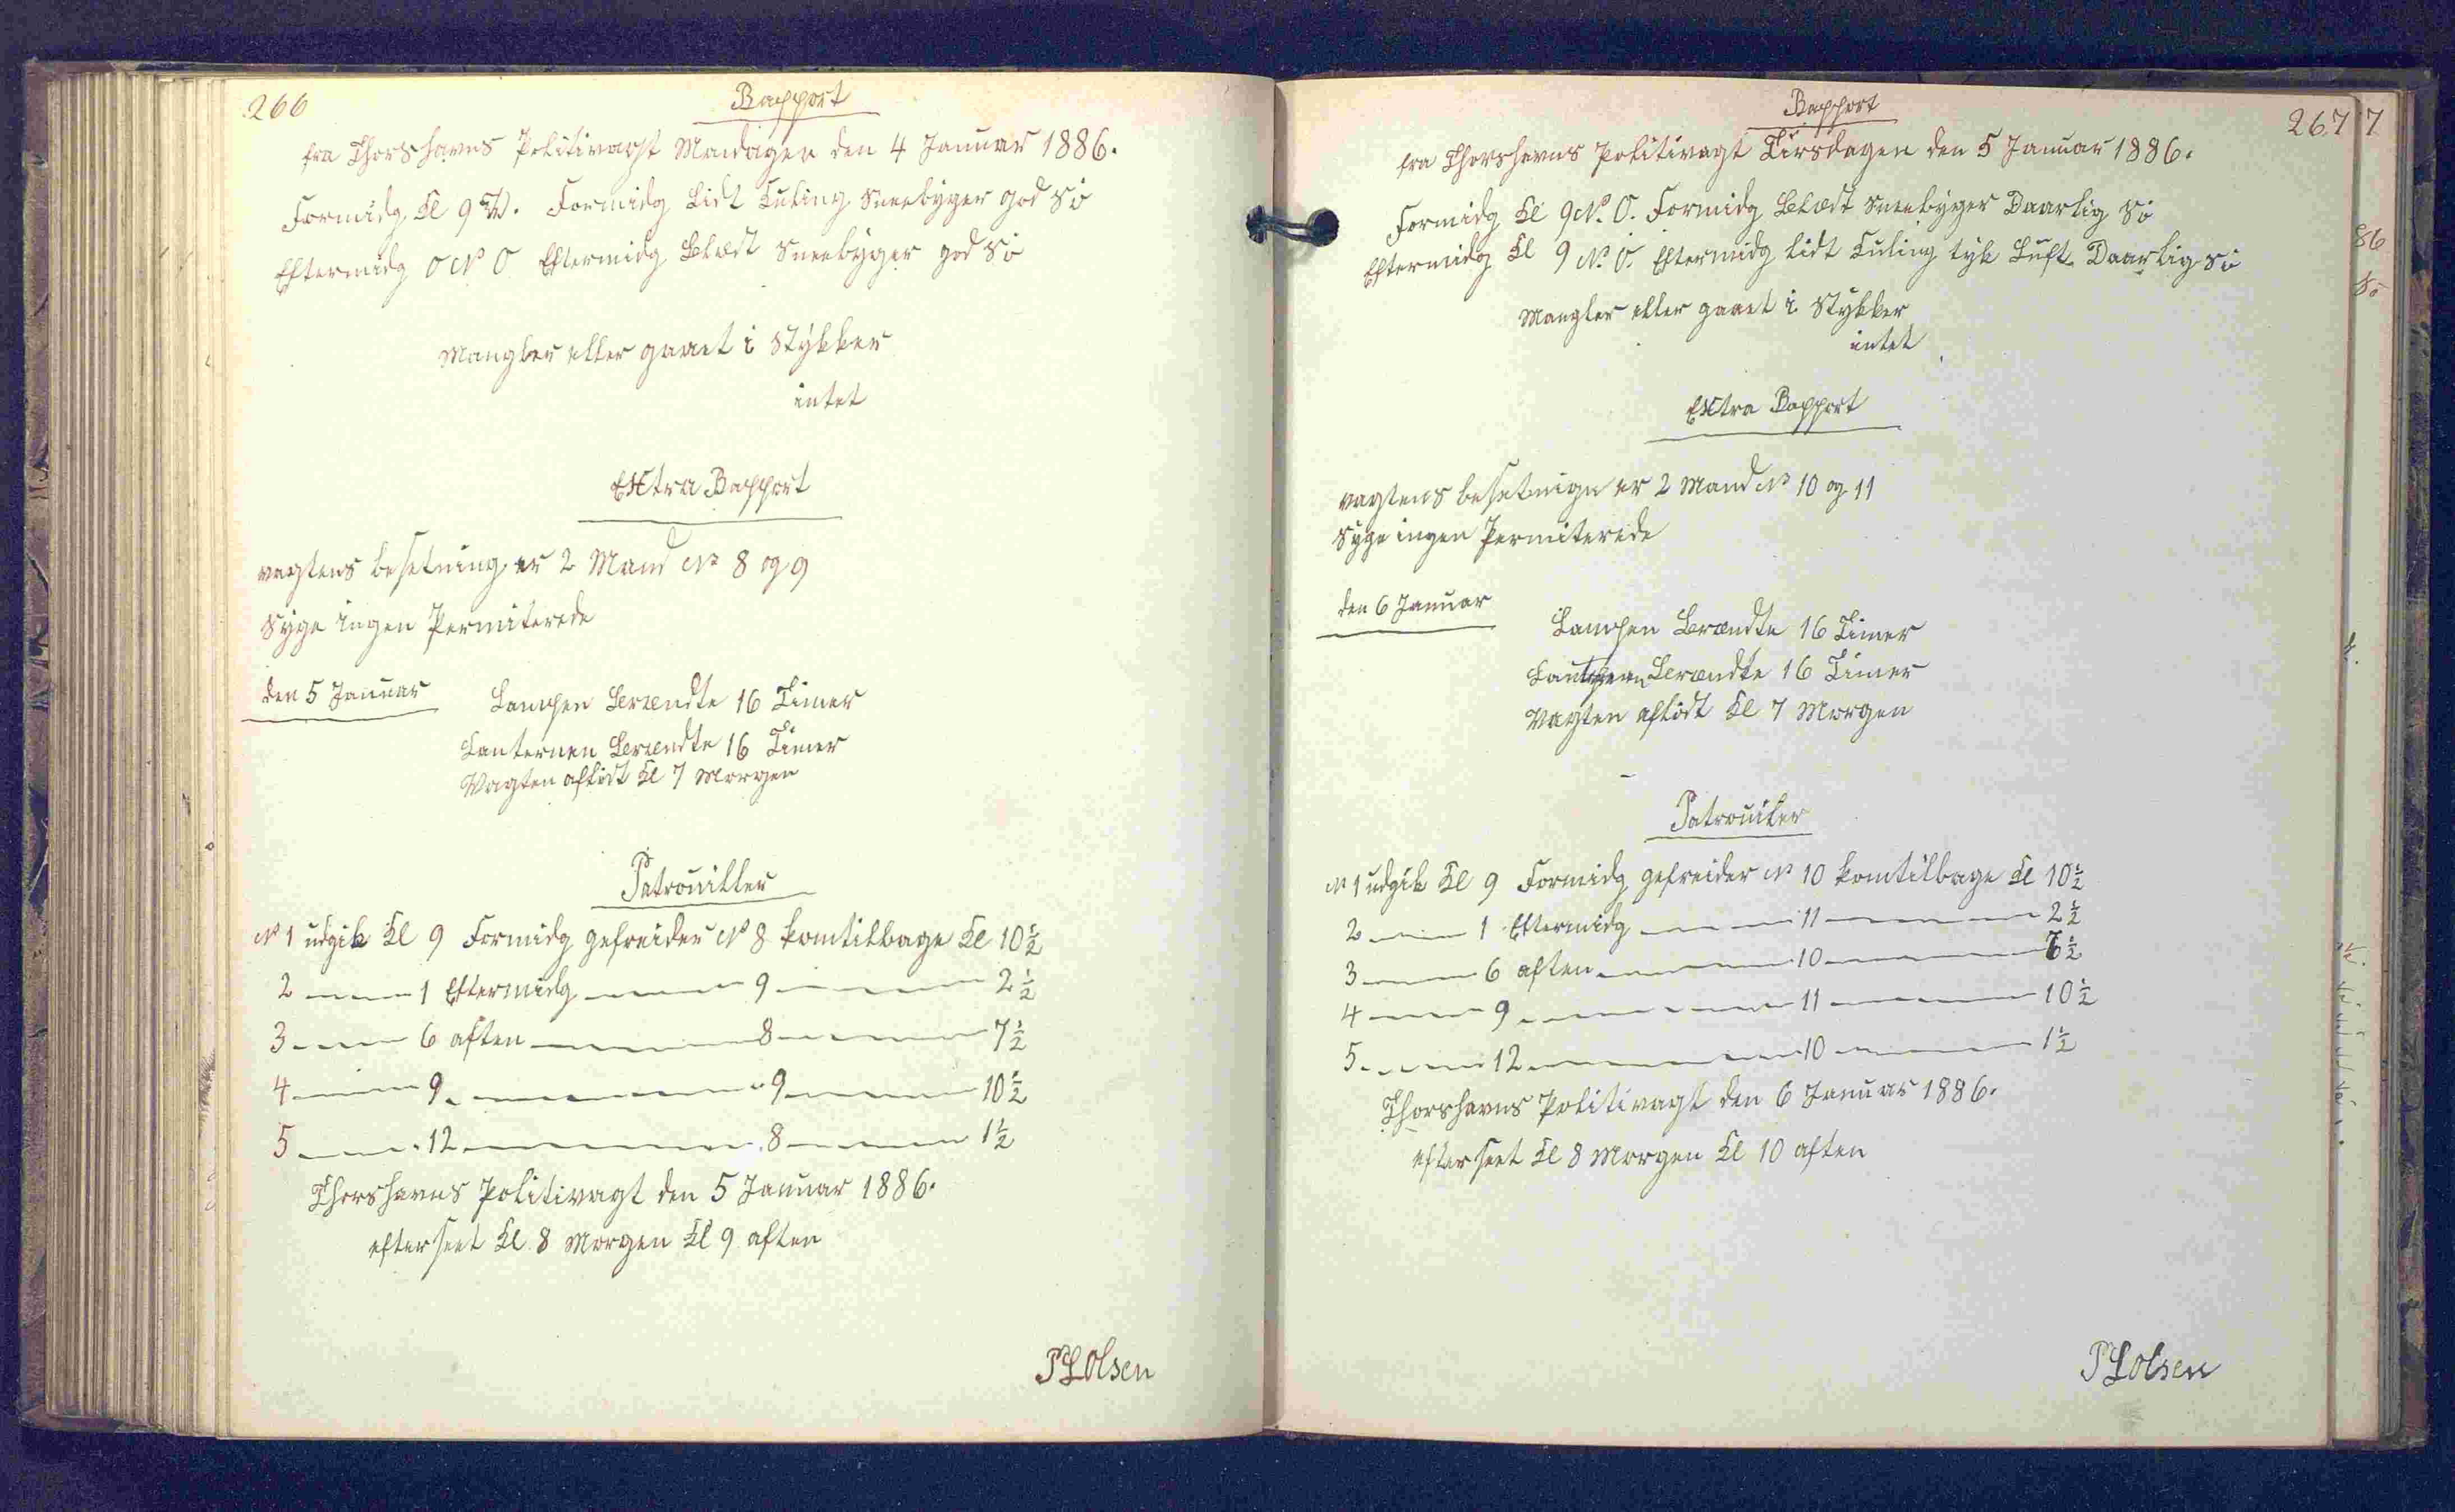 266
Rapport
fra Thorshavns Politivagt Mandagen den 4 Januar 1886.
Formidg Kl 9 V. Formidg Lidt Kuling Sneebyger god Sö
Eftermidg O N O Eftermidg Blæst Sneebyger god Sö
Mangler eller gaaet i Stykker
intet
Extra Rapport
vagtens besetning er 2 Mand No 8 og 9
Syge ingen Permiterede
den 5 Januar
Lampen Brændte 16 Timer
Lanternen Brændte 16 Timer
Vagten aflöst Kl 7 Morgen
Patrouiller
No 1 udgik Kl 9 Formidg gefreider No 8 komtilbage Kl 10½
2 — 1 Eftermidg — 9 — 2½
3 — 6 aften — 8 — 7½
4 — 9 — 9 — 10½
5 — 12 — 8 — 1½
Thorshavns Politivagt den 5 Januar 1886.
efterseet Kl 8 Morgen Kl 9 aften
PLOlsen
267
Rapport
fra Thorshavns Politivagt Tirsdagen den 5 Januar 1886.
Formidg Kl 9 N. O. Formidg Blæst Sneebyger Daarlig Sö
Eftermidg Kl 9 N. O. Eftermidg lidt Kuling tyk Luft Daarlig Sö
Mangler eller gaaet i Stykker
intet
Extra Rapport
vagtens besetnign er 2 Mand No 10 og 11
Syge ingen Permiterede
den 6 Januar
Lampen Brændte 16 Timer
Brændte 16 Timer
Vagten aflöst Kl 7 Morgen
Patrouiler
No 1 udgik Kl 9 Formidg gefreider No 10 komtilbage Kl 10½
2 — 1 Eftermidg — 11 — 2½
3 — 6 aften — 10 — 7½
4 — 9 — 11 — 10½
5 — 12 — 10 — 1½
Thorshavns Politivagt den 6 Januar 1886.
efterseet Kl 8 Morgen Kl 10 aften
PLOlsen
7
86
Sö